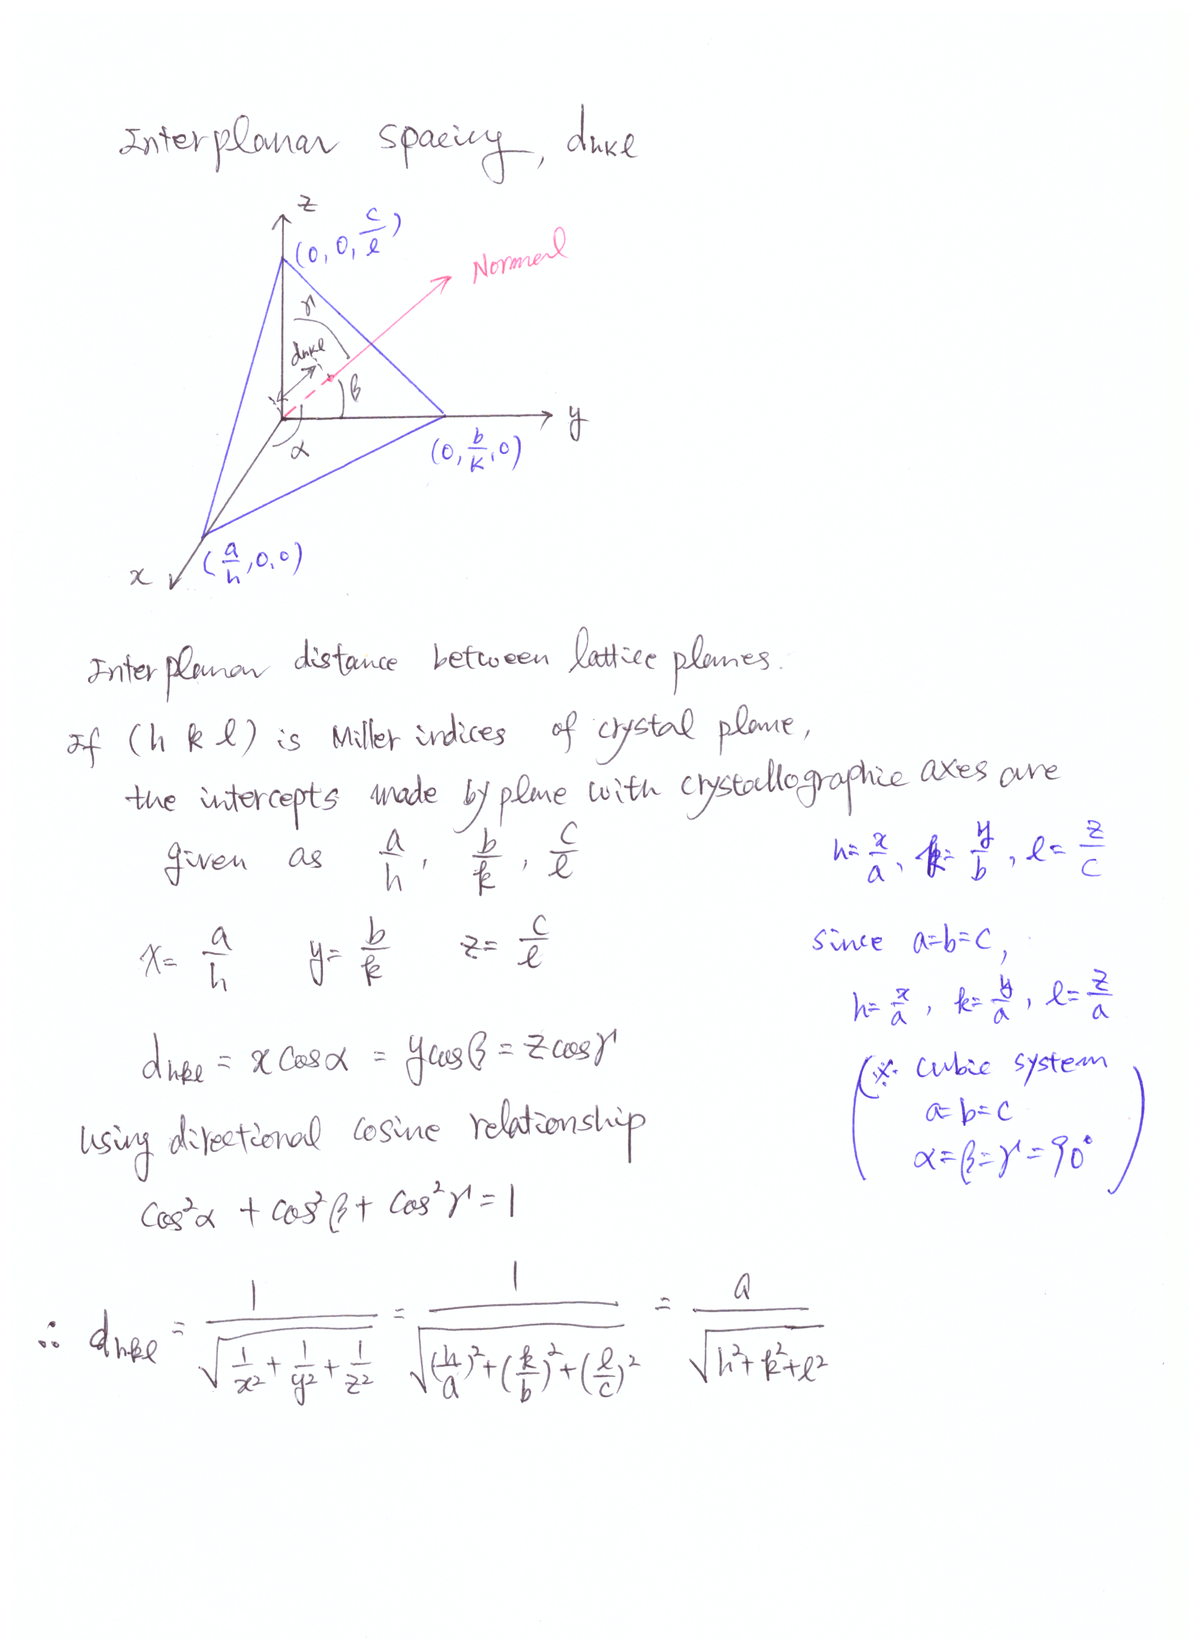 Interplanar spacing, dhkl
z
(0, 0, c/l)
Normal
γ
dhkl
β
y
α
(0, b/k, 0)
x
(a/h, 0, 0)
Interplanar distance between lattice planes.
If (h k l) is Miller indices of crystal plane,
the intercepts made by plane with crystallographic axes are
given as a/h, b/k, c/l
h= x/a, k= y/b, l= z/c
x= a/h y= b/k z= c/l
since a=b=c,
h= x/a, k= y/a, l= z/a
dhkl = x cosα = y cosβ = z cosγ
(※ cubic system
a=b=c
α=β=γ=90°)
Using directional cosine relationship
cos²α + cos²β + cos²γ = 1
∴ dhkl = 1/√(1/x² + 1/y² + 1/z²) = 1/√((h/a)² + (k/b)² + (l/c)²) = a/√(h²+k²+l²)